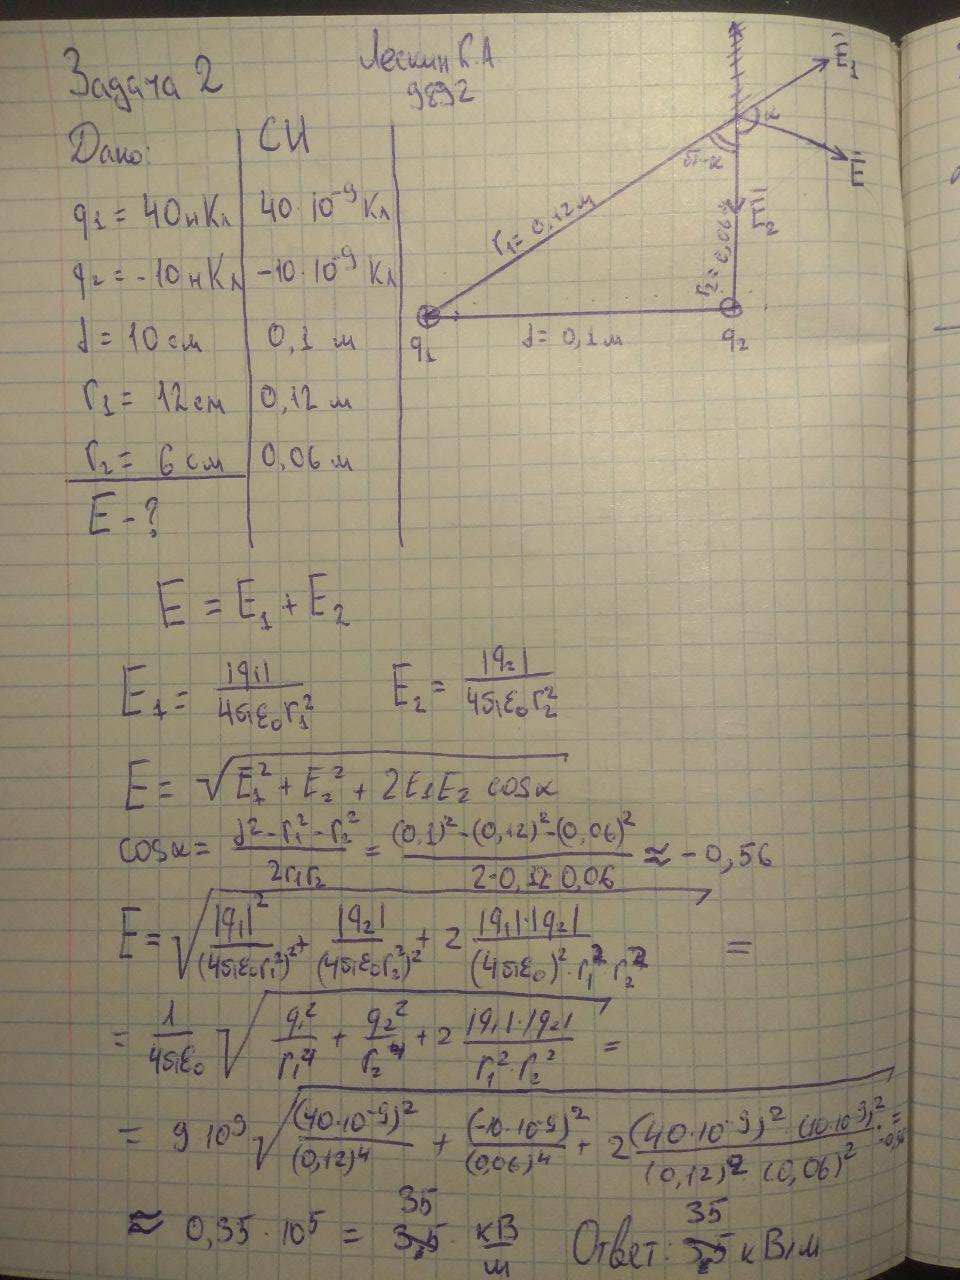 Задача 2
Лескин Г.А
9892
Дано:
СИ
q1 = 40 нКл
40·10^-9 Кл
q2 = -10 нКл
-10·10^-9 Кл
d = 10 см
0,1 м
r1 = 12 см
0,12 м
r2 = 6 см
0,06 м
E - ?
E1
α
π-α
E
E2
r1 = 0,12 м
r2 = 0,06 м
q1
d = 0,1 м
q2
E = E1 + E2
E1 = |q1| / 4πε0r1^2
E2 = |q2| / 4πε0r2^2
E = √(E1^2 + E2^2 + 2E1E2 cosα)
cosα = (d^2 - r1^2 - r2^2) / 2r1r2 = ((0,1)^2 - (0,12)^2 - (0,06)^2) / 2·0,12·0,06 ≈ -0,56
E = √(|q1|^2 / (4πε0r1^2)^2 + |q2| / (4πε0r2^2)^2 + 2 |q1|·|q2| / (4πε0)^2·r1^2 r2^2) =
= 1 / 4πε0 √(q1^2 / r1^4 + q2^2 / r2^4 + 2 |q1|·|q2| / r1^2·r2^2) =
= 9·10^9 √((40·10^-9)^2 / (0,12)^4 + (-10·10^-9)^2 / (0,06)^4 + 2 (40·10^-9)^2·(10·10^-9)^2 / (0,12)^2·(0,06)^2 · =
≈ 0,35·10^5 = 35 кВ/м
Ответ: 35 кВ/м